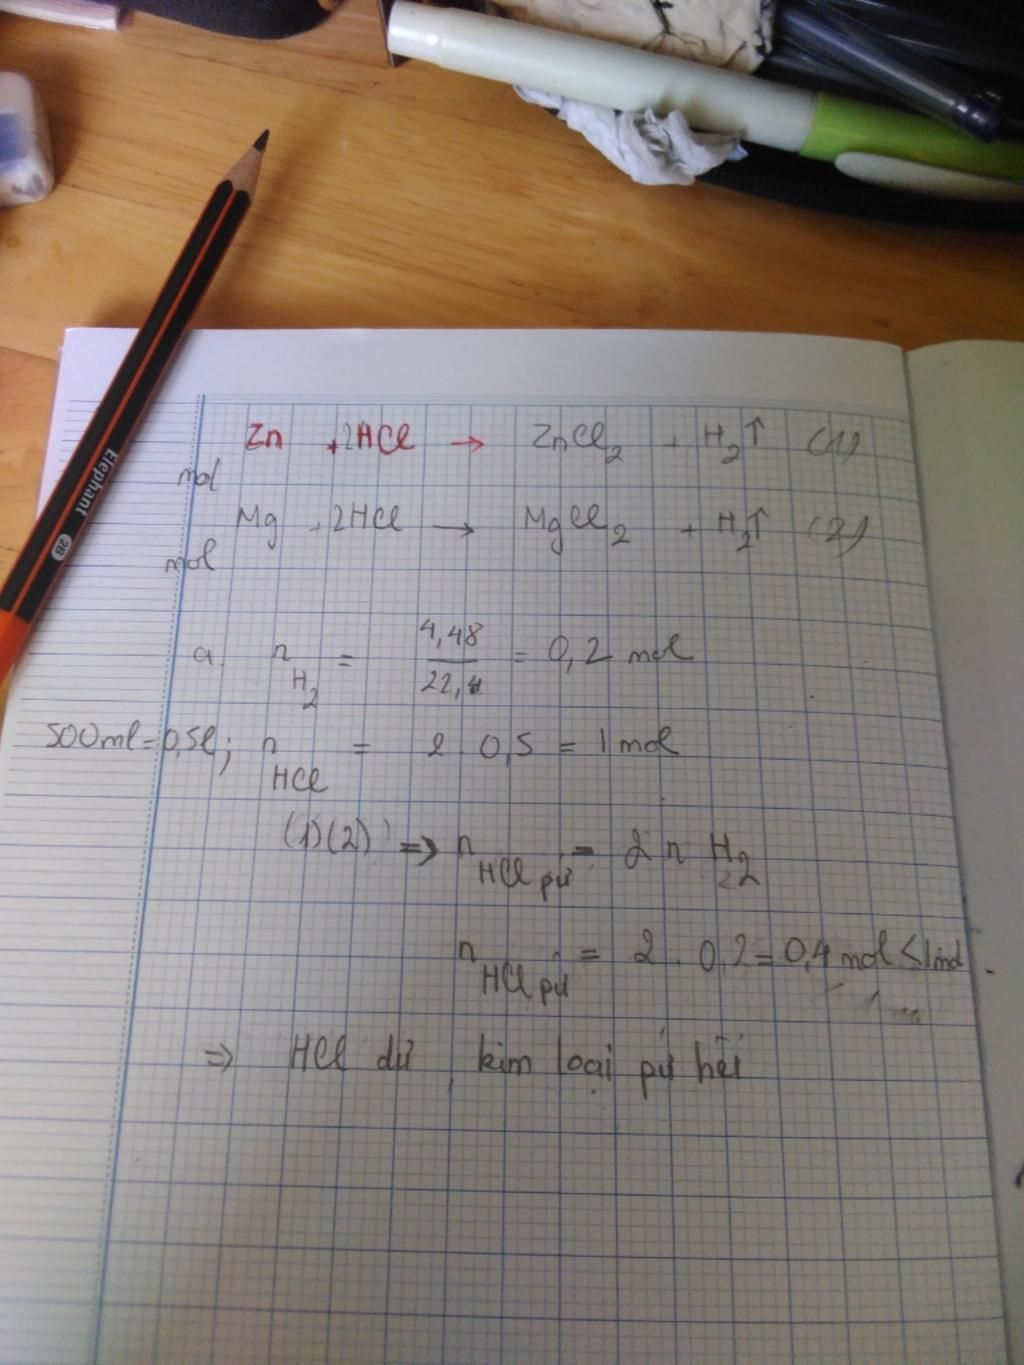 Elephant 2B
Zn + 2HCl → ZnCl₂ + H₂↑ (1)
mol
Mg + 2HCl → MgCl₂ + H₂↑ (2)
mol
a. n H₂ = 4,48 / 22,4 = 0,2 mol
500ml = 0,5l; n HCl = 2 . 0,5 = 1 mol
(1)(2) => n HCl pứ = 2 n H₂
n HCl pứ = 2 . 0,2 = 0,4 mol < 1 mol
=> HCl dư, kim loại pứ hết